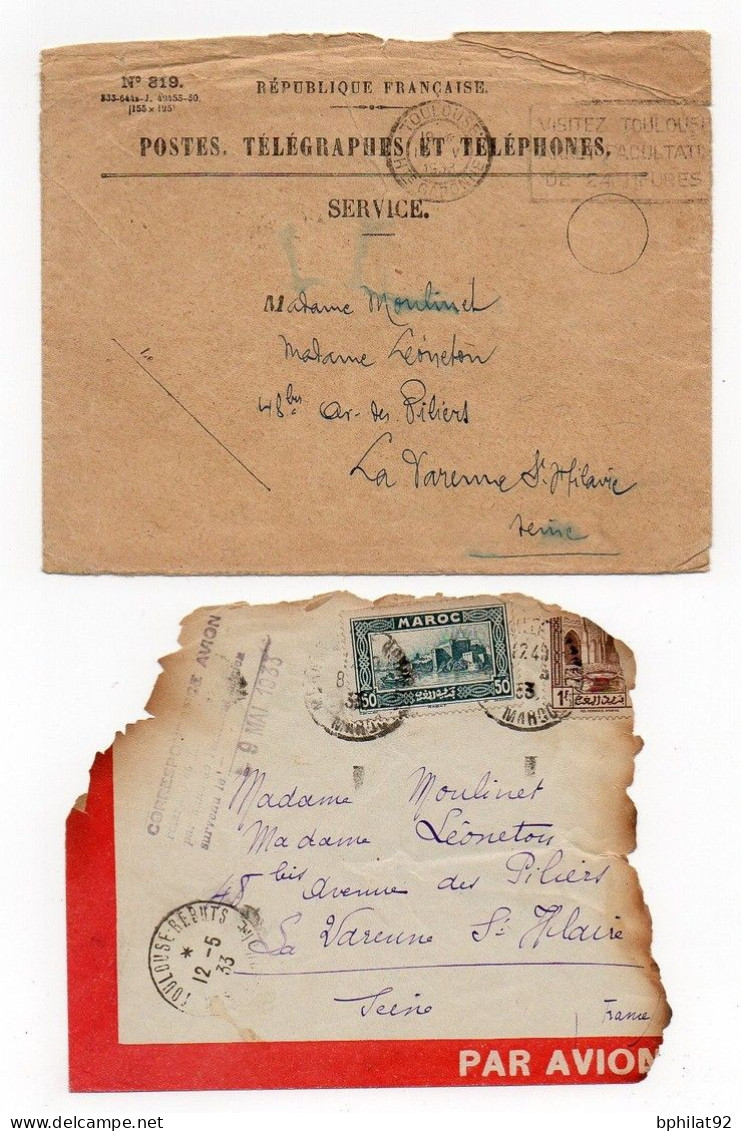 Nº 819.
RÉPUBLIQUE FRANÇAISE.
POSTES, TÉLÉGRAPHES ET TÉLÉPHONES.
TOULOUSE
1933
HTE GARONNE
VISITEZ TOULOUSE
DE 24 HEURES
SERVICE.
Madame Moulinet
Madame Léoneton
48 bis Av. des Piliers
La Varenne St Hilaire
Seine
CORRESPONDANCE AVION
survenu le
9 MAI 1933
MAROC
50 50
1F
12 40
33
MAROC
Madame Moulinet
Madame Léoneton
48 bis Avenue des Piliers
La Varenne St Hilaire
Seine
France
TOULOUSE-REBUTS
*
12-5
33
PAR AVION
bphilat92